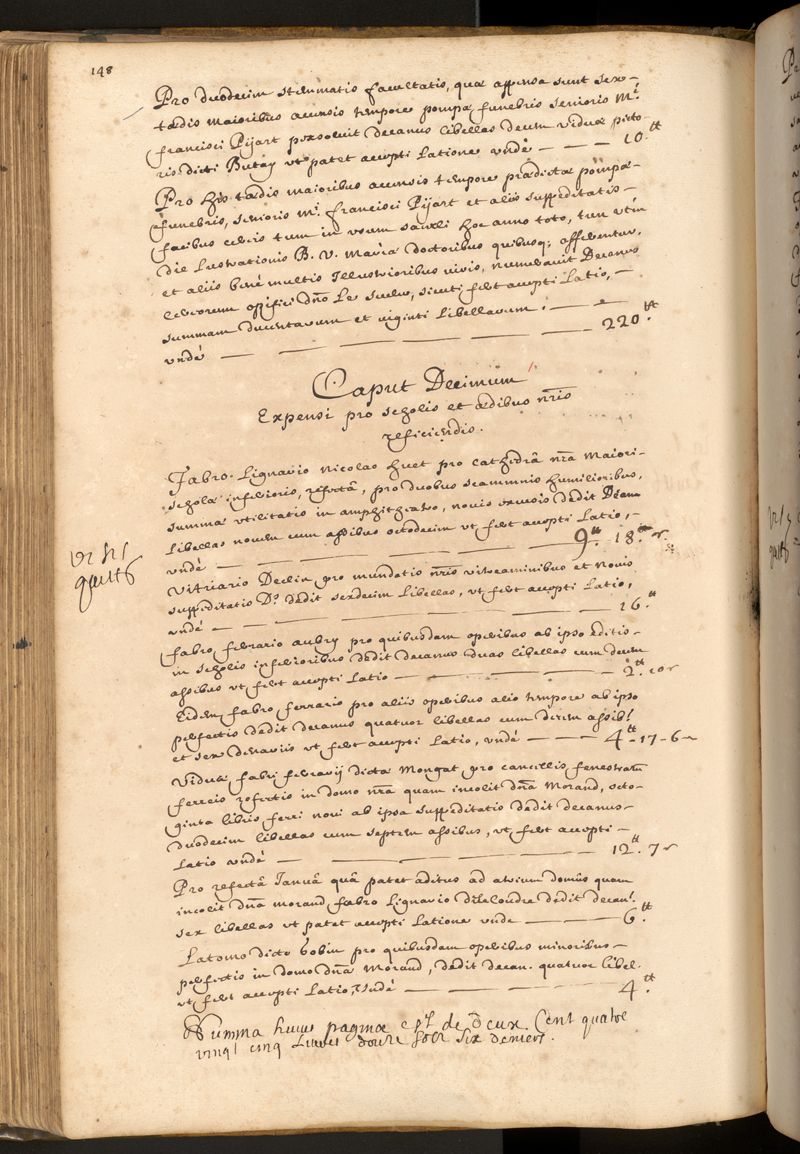 148
Pro duodecim stemmatis facultatis, quæ appensa sunt sex-
tædis maioribus accensis tempore pompæ funebris senioris Mi.
francisci Pijart persoluit decanus libellas decem viduæ picto-
ris dicti Butay vt patet accepti Latione vnde — — — 10.tt
Pro his tædis maioribus accensis tempore prædictæ pompæ-
funebris, senioris Mi. francisci Pijart et aliis suppeditatis-
facibus cereis tum in vsum sacelli hoc anno toto, tum vtin
die Lustrationis B. V. Mariæ doctoribus quibusq; afferentur,
et aliis benè multis Illustrioribus viris, numerauit Decanus
cereorum opifici dño Le sueur, sicuti fert accepti Latio, -
summam ducentarum et viginti Libellarum, — —
vndè — — — — 220.tt
Caput Decimum
Expensi pro scholis et ædibus nr̃is
reficiendis.
Fabro Lignario Nicolao Huet pro cathedrâ nr̃a Maiori-
schola inferioris, refectâ, pro duobus scamnis humilioribus,
summæ vtilitatis in amphitheatro, novis excusis dedit Decanus
Libellas novem cum assibus octodecim vt fert accepti Latio, -
vndè — — — — 9tt. 18.s
Vitriario Declin pro mundatis nr̃is vitreaminibus et novis
suppeditatis Ds. dedit sexdecim Libellas, vt fert accepti Latio,
vndè — — — — 16.tt
fabro ferrario aubry pro quibusdam operibus ab ipso editis-
in scholis inferioribus dedit decanus duas libellas cum decem
assibus vt fert accepti Latio — — — 2.tt 10s
Eidem fabro ferrario pro aliis operibus alio tempore ab ipso
perfectis dedit decanus quatuor libellas cum decem assib!
et sex denariis vt fert accepti Latio, vndè — — — 4tt-17-6
Viduæ fabri ferrarij dictæ Mongat pro cancellis fenestrarũ
ferreis refectis in domo nr̃a quam incolit dña Morand, octo-
ginta libris ferri novi ab ipsa suppeditatis dedit decanus-
duodecim libellas cum septem assibus, vt fert accepti -
Latio vndè — — — — 12tt. 7s
Pro refectâ Ianuâ quâ patet aditus ad atrium domûs quam
incolit dña morand fabro Lignario Delalondre dedit decan!
sex libellas vt patet accepti Latione vnde — — — 6.tt
Latomo dicto bobin pro quibusdam operibus minoribus -
perfectis in domo dñæ Morand, dedit decan. quatuor libel.
vt fert accepti Latio, vndè — — — 4.tt
Summa huius paginæ est de Deux Cent quatre
vingt cinq Livres douze sols six deniers.